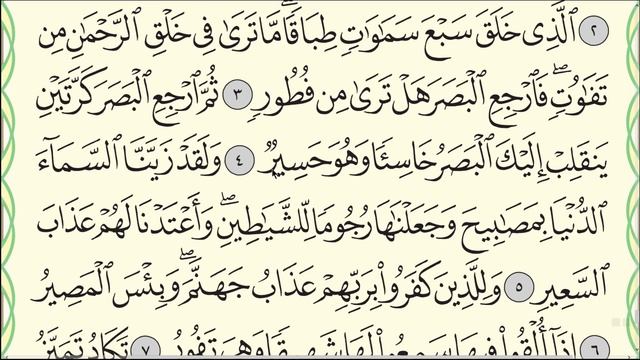 ٢ ٱلَّذِى خَلَقَ سَبْعَ سَمَٰوَٰتٍ طِبَاقًا ۖ مَّا تَرَىٰ فِى خَلْقِ ٱلرَّحْمَٰنِ مِن
تَفَٰوُتٍ ۖ فَٱرْجِعِ ٱلْبَصَرَ هَلْ تَرَىٰ مِن فُطُورٍ ٣ ثُمَّ ٱرْجِعِ ٱلْبَصَرَ كَرَّتَيْنِ
يَنقَلِبْ إِلَيْكَ ٱلْبَصَرُ خَاسِئًا وَهُوَ حَسِيرٌ ٤ وَلَقَدْ زَيَّنَّا ٱلسَّمَآءَ
ٱلدُّنْيَا بِمَصَٰبِيحَ وَجَعَلْنَٰهَا رُجُومًا لِّلشَّيَٰطِينِ ۖ وَأَعْتَدْنَا لَهُمْ عَذَابَ
ٱلسَّعِيرِ ٥ وَلِلَّذِينَ كَفَرُوا۟ بِرَبِّهِمْ عَذَابُ جَهَنَّمَ ۖ وَبِئْسَ ٱلْمَصِيرُ
٦ إِذَآ أُلْقُوا۟ فِيهَا سَمِعُوا۟ لَهَا شَهِيقًا وَهِىَ تَفُورُ ٧ تَكَادُ تَمَيَّزُ